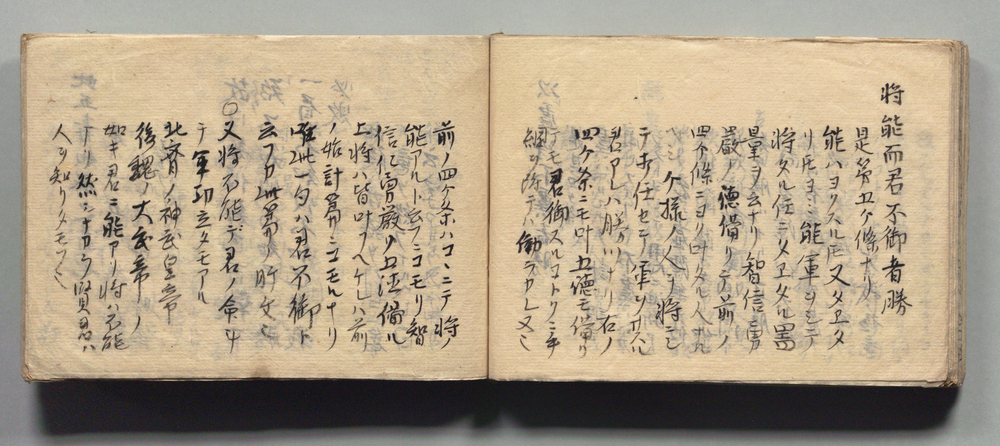 将能而君不御者勝
是第五ケ條ナリ
能ハヨクスル𪜈又タヱタ
リ𪜈ヨミ能軍ヲシテ
将タル任ニタヱタル器
量ヲ云ナリ智信仁勇
嚴ノ德備リテ前ノ
四个條ニヨク叶タル人ナルヘシ
ケ様ノ人ヲ将ニ
テ
君アレハ勝ハナリ右ノ
四ケ条ニモ叶五德モ備リ
テモ君御スルコトハ手
細ヲ
前ノ四ケ条ハコヽニテ将ノ
能アルト云フニコモリ智
信仁勇嚴ノ五德備ル
上将ハ皆叶フヘケレハ前
ノ始計篇ニコモルナリ
唯此一句ハ君不御ト
云フカ此篇ノ肝文也
○又将不能デ君ノ命斗
テ軍功立タモアル
北齊ノ神武皇帝
後魏ノ太武帝ノ
如キ君ニ能アリ将ハ不能
ナリ然シナカラ賢君ハ
人ヲ知リタモフ也